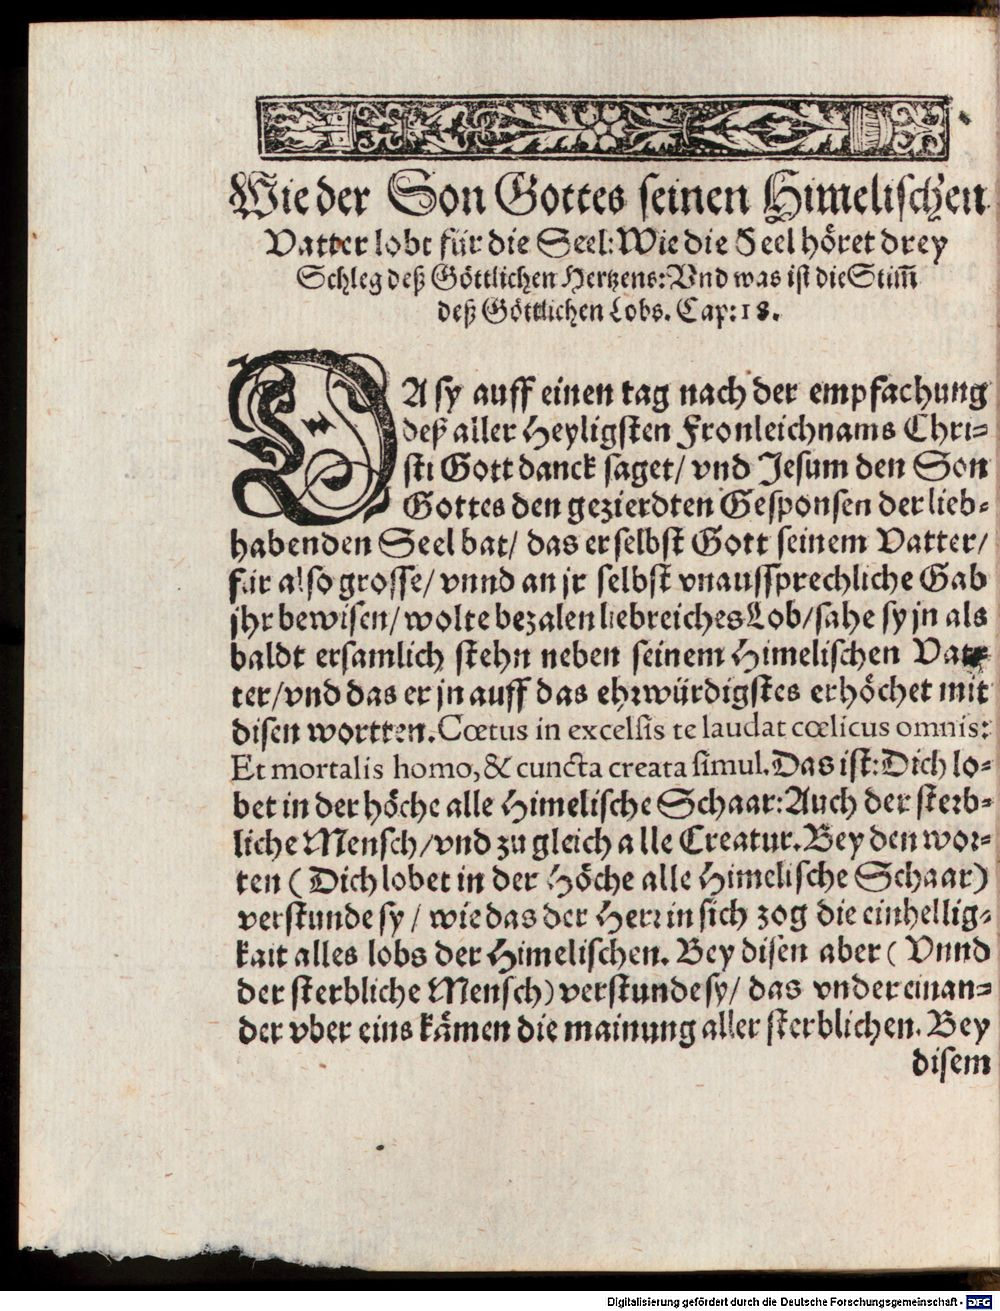 Wie der Son Gottes seinen Himelischen
Vatter lobt für die Seel: Wie die Seel höret drey
Schleg deß Göttlichen Hertzens: Vnd was ist die Stim̄
deß Göttlichen Lobs. Cap: 18.
DA sy auff einen tag nach der empfachung
deß aller Heyligsten Fronleichnams Chri-
sti Gott danck saget/ vnd Jesum den Son
Gottes den gezierdten Gesponsen der lieb-
habenden Seel bat/ das er selbst Gott seinem Vatter/
für also grosse/ vnnd an jr selbst vnaussprechliche Gab
jhr bewisen/ wolte bezalen liebreiches Lob/ sahe sy jn als
baldt ersamlich stehn neben seinem Himelischen Vat-
ter/ vnd das er jn auff das ehrwürdigstes erhöchet mit
disen wortten. Cœtus in excelsis te laudat cœlicus omnis:
Et mortalis homo, & cuncta creata simul. Das ist: Dich lo-
bet in der höche alle Himelische Schaar: Auch der sterb-
liche Mensch/ vnd zu gleich alle Creatur. Bey den wor-
ten (Dich lobet in der Höche alle Himelische Schaar)
verstunde sy/ wie das der Herr in sich zog die einhellig-
kait alles lobs der Himelischen. Bey disen aber ( Vnnd
der sterbliche Mensch) verstunde sy/ das vnder einan-
der vber eins kämen die mainung aller sterblichen. Bey
disem
Digitalisierung gefördert durch die Deutsche Forschungsgemeinschaft - DFG